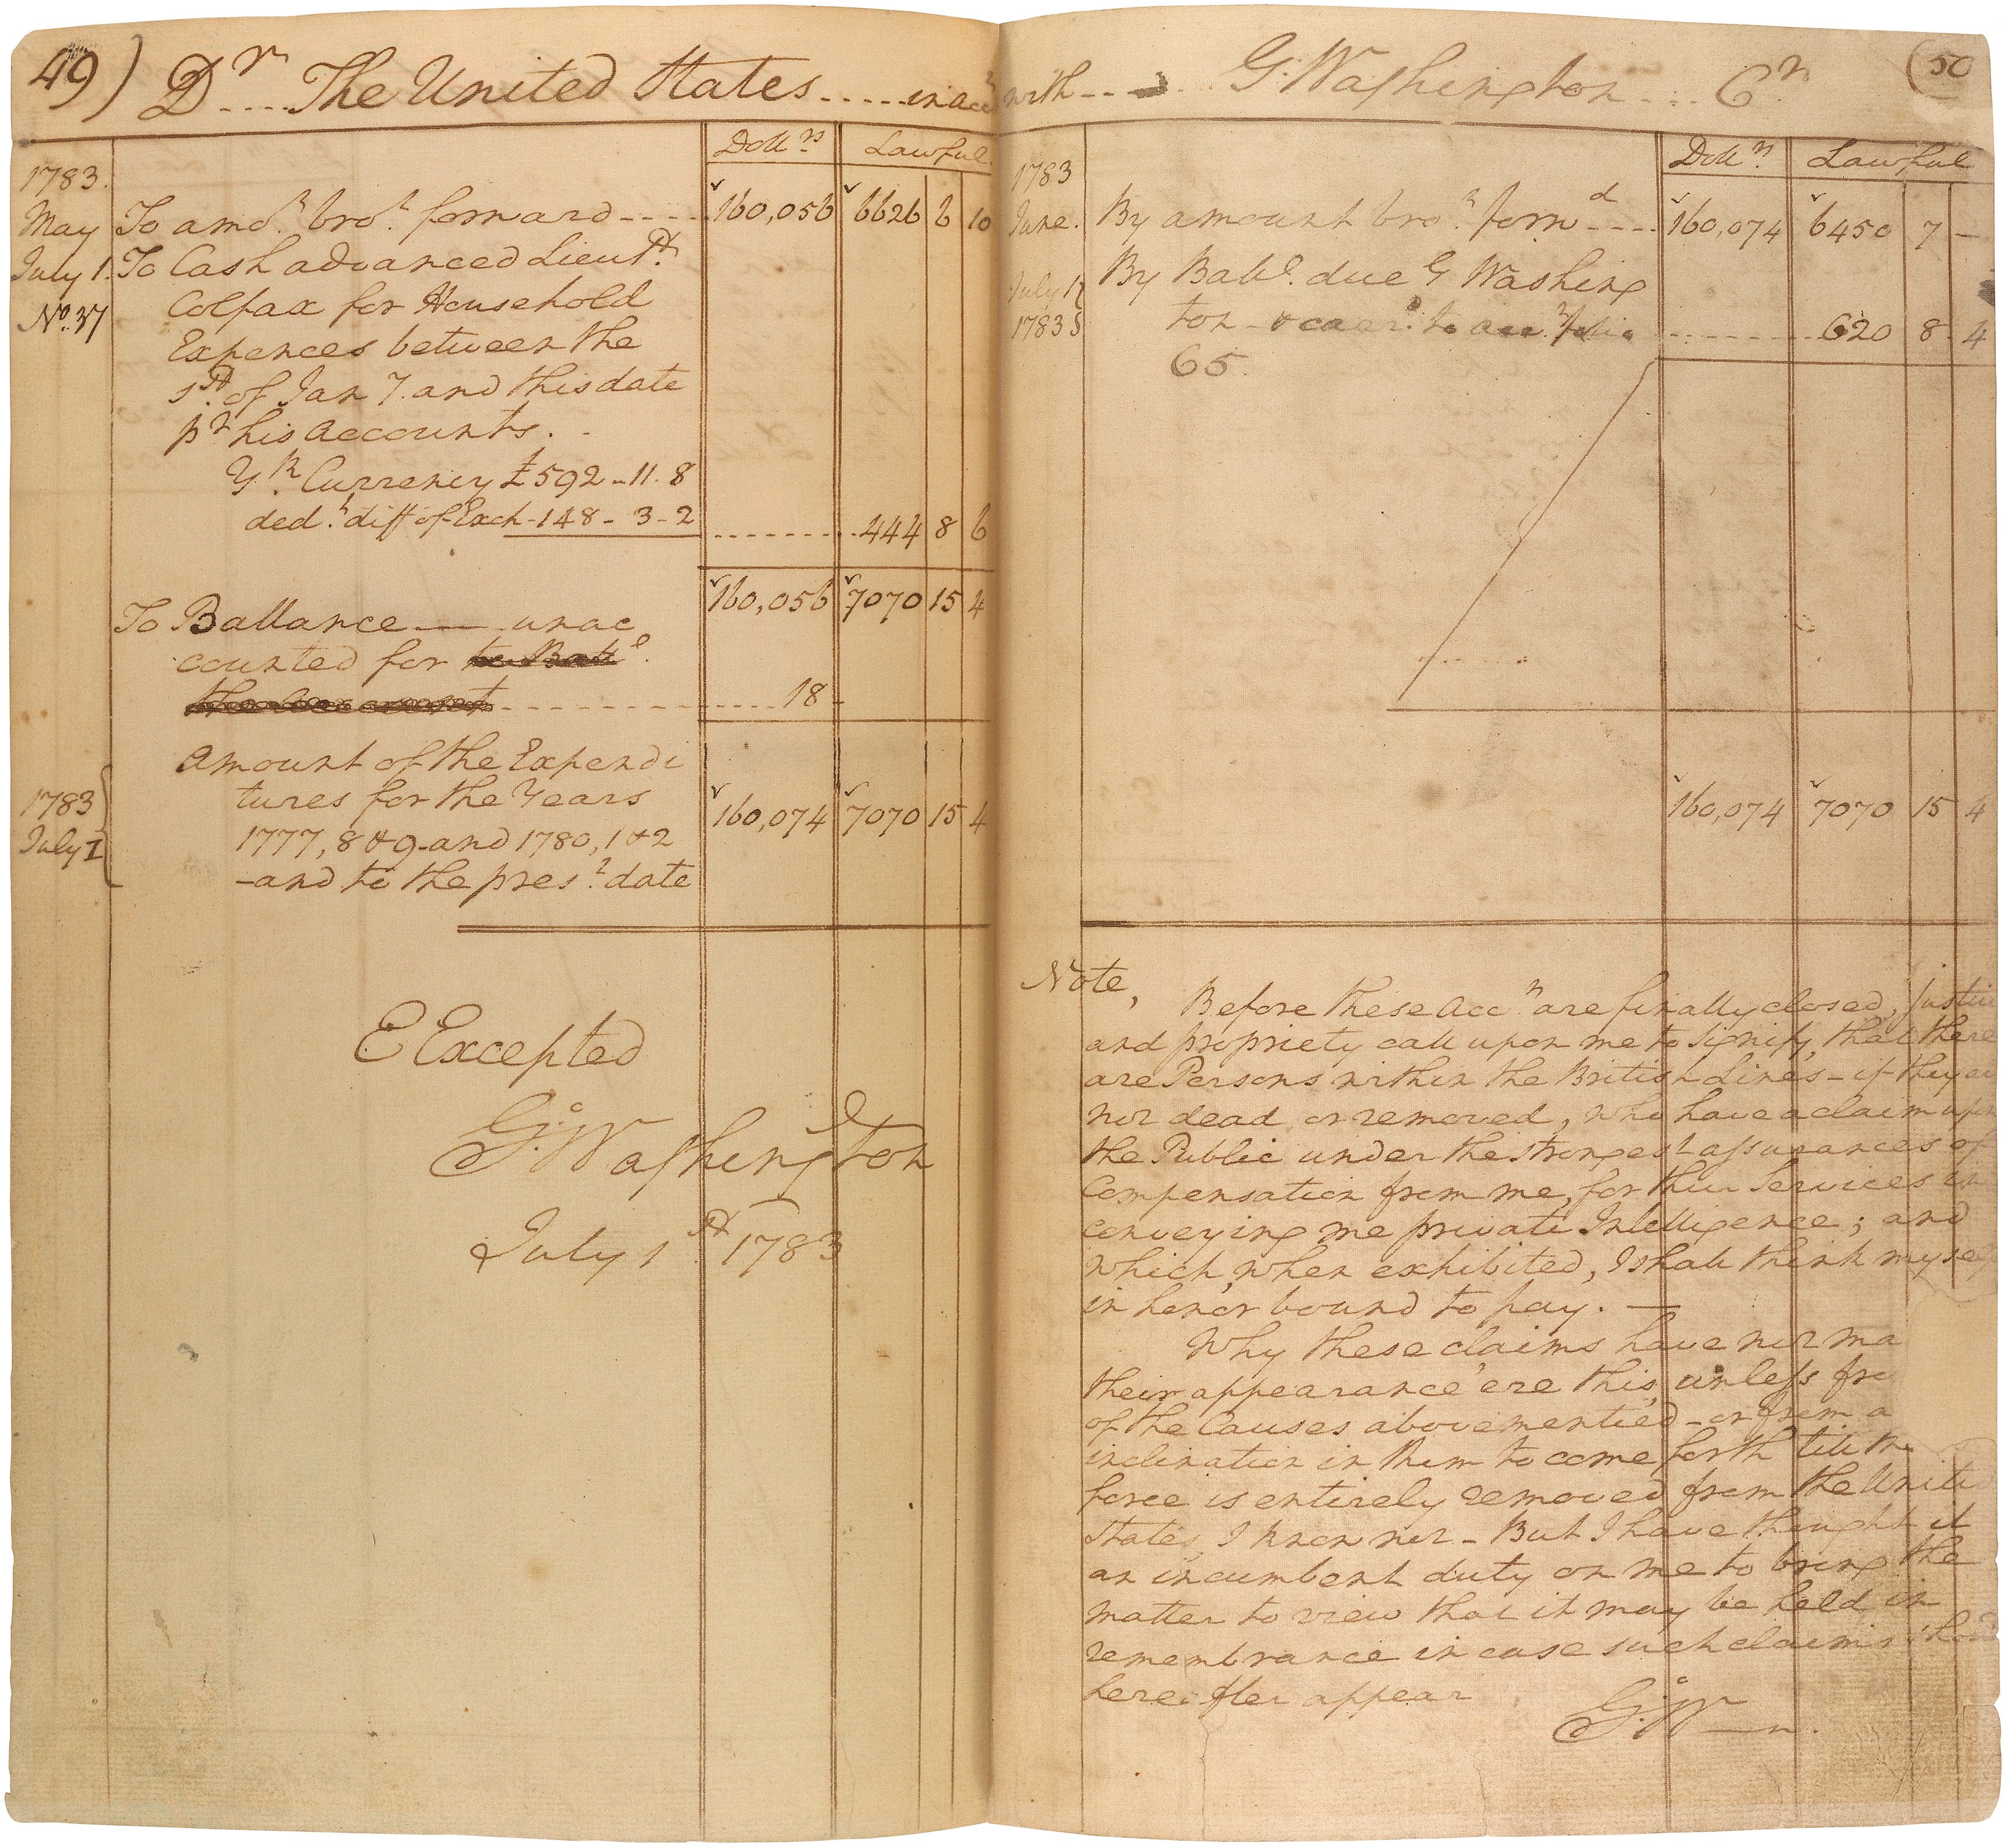 49) Dr .... The United States ..... in acct
1783. Dollrs Lawful
May To amot brot forward ---- 160,056 6626 6 10
July 1. To Cash advanced Lieutt
No. 37 Colfax for Household
Expences between the
1st of Jany. and this date
pr his accounts.
Yk Currency £592-11.8
dedt diff of Exch-148-3-2 444 8 6
160,056 7070 15 4
To Ballance —— unac
counted for to Balle
the account 18 -
Amount of the Expendi
1783 tures for the Years 160,074 7070 15 4
July 1 1777, 8 & 9-and 1780, 1 & 2
-and to the prest date
E Excepted
Go: Washington
July 1st 1783
with ---- G: Washington .... Cr (50
1783 Dollrs Lawful
June. By amount brot forwd ---- 160,074 6450 7 -
July 1 By Balle. due G Washing
1783 ton - & to acct folio 620 8 4
65.
160,074 7070 15 4
Note,
Before these Accts are finally closed, justice
and propriety call upon me to signify, that there
are Persons within the British Lines - if they are
not dead or removed, who have a claim upon
the Public under the strongest assurances of
Compensation from me, for their Services in
conveying me private Intelligence; and
which, when exhibited, I shall think myself
in honor bound to pay. —
Why these claims have not ma
their appearance ere this, unless fro
of the Causes abovementied - or from a
inclination in them to come forth till the
force is entirely removed from the United
States, I know not - But I have thought it
an incumbent duty on me to bring the
matter to view that it may be held in
remembrance in case such claims should
hereafter appear
Go: W——n.